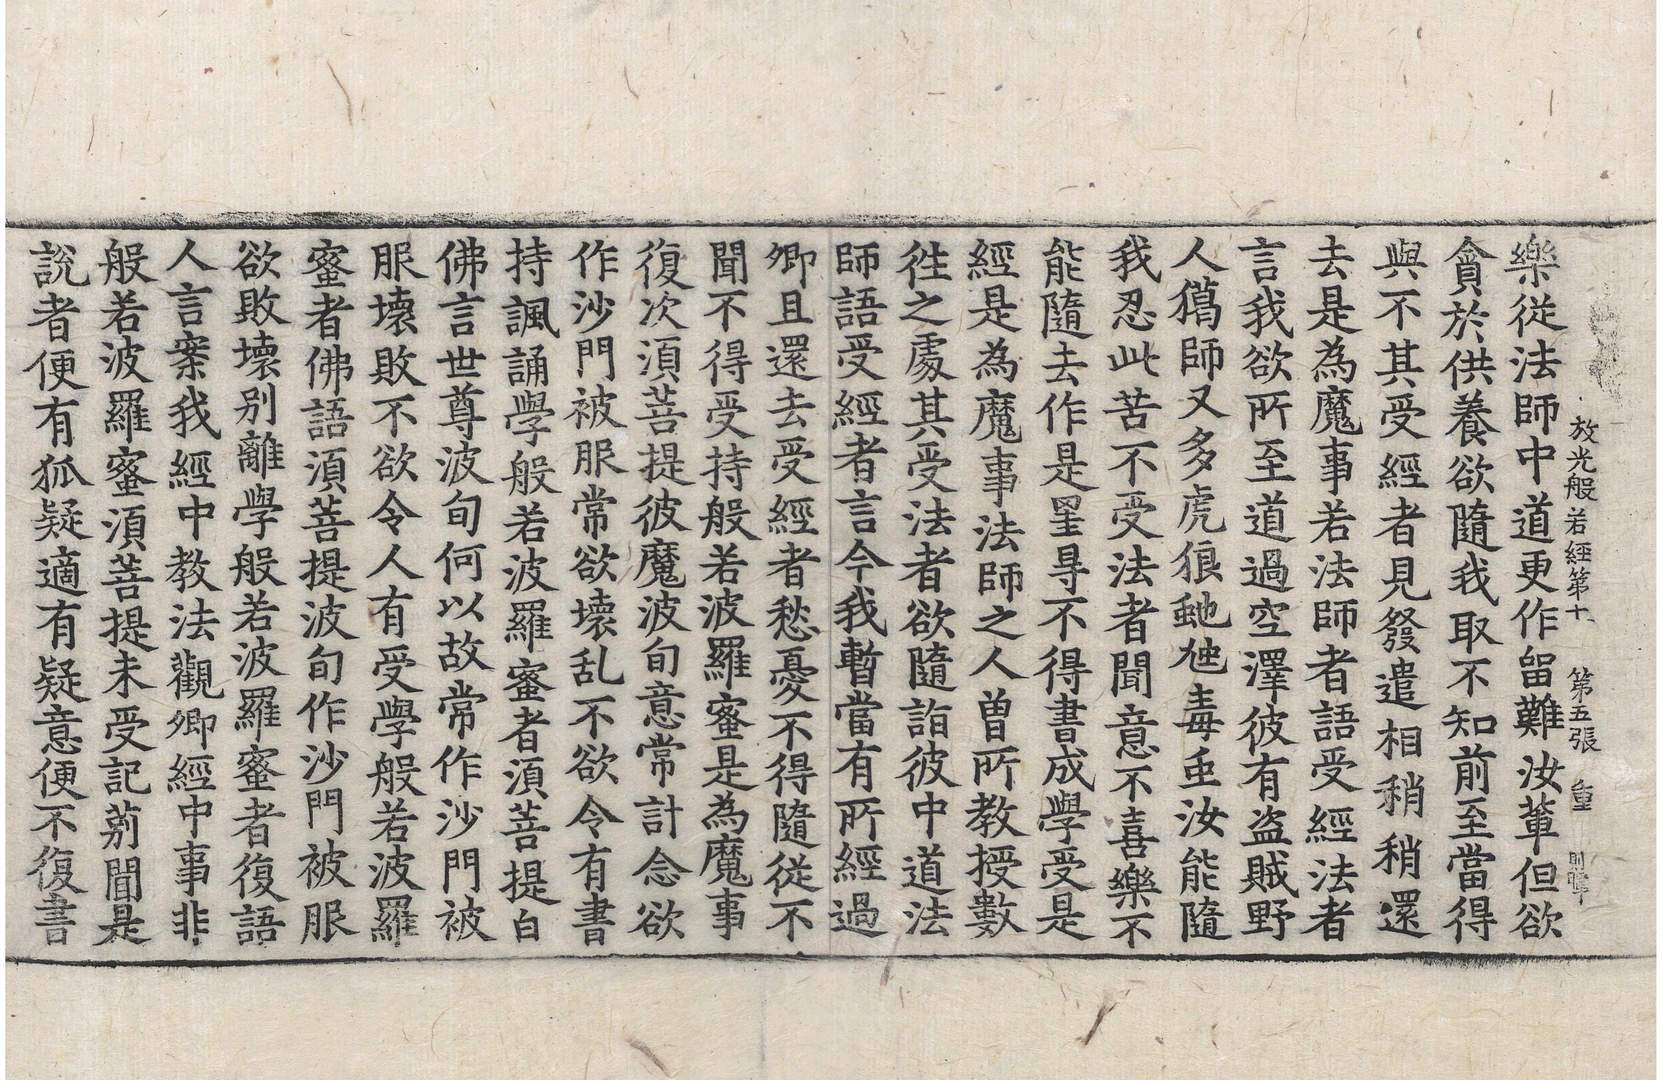 放光般若經第十 第五張 重
樂從法師中道更作留難汝輩但欲
貪於供養欲隨我取不知前至當得
與不其受經者見發遣相稍稍還
去是為魔事若法師者語受經法者
言我欲所至道過空澤彼有盜賊野
人獦師又多虎狼虵虺毒虫汝能隨
我忍此苦不受法者聞意不喜樂不
能隨去作是罣㝵不得書成學受是
經是為魔事法師之人曾所教授數
徃之處其受法者欲隨詣彼中道法
師語受經者言今我暫當有所經過
卿且還去受經者愁憂不得隨從不
聞不得受持般若波羅蜜是為魔事
復次湏菩提彼魔波旬意常計念欲
作沙門被服常欲壞乱不欲令有書
持諷誦學般若波羅蜜者湏菩提白
佛言世尊波旬何以故常作沙門被
服壞敗不欲令人有受學般若波羅
蜜者佛語湏菩提波旬作沙門被服
欲敗壞別離學般若波羅蜜者復語
人言案我經中教法觀卿經中事非
般若波羅蜜湏菩提未受記莂聞是
說者便有狐疑適有疑意便不復書